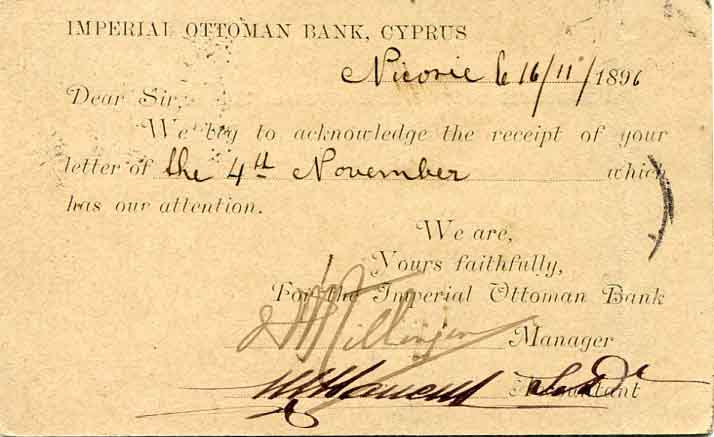 IMPERIAL OTTOMAN BANK, CYPRUS
Nicosie le 16/11/1896
Dear Sir,
We beg to acknowledge the receipt of your
letter of the 4th November which
has our attention.
We are,
Yours faithfully,
For the Imperial Ottoman Bank
Manager
Accountant